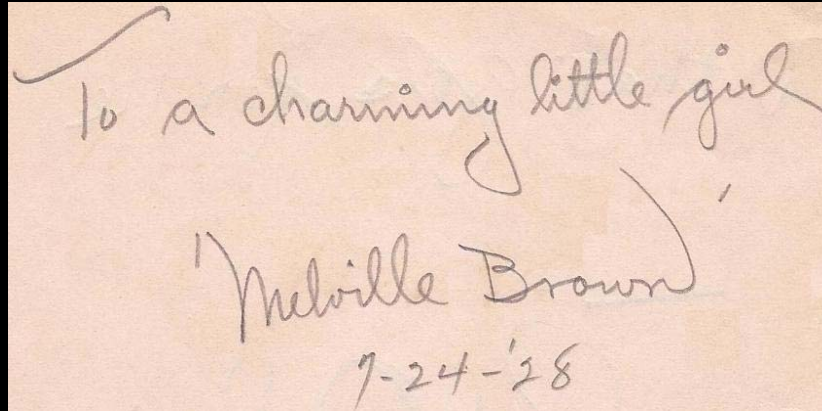 To a charming little girl
'Melville Brown'
7-24-'28